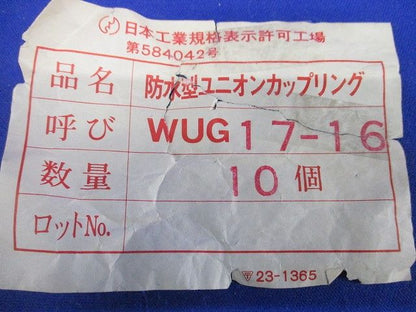 日本工業規格表示許可工場
第584042号
品名 防水型ユニオンカップリング
呼び WUG 17-16
数量 10個
ロットNo.
〒23-1365